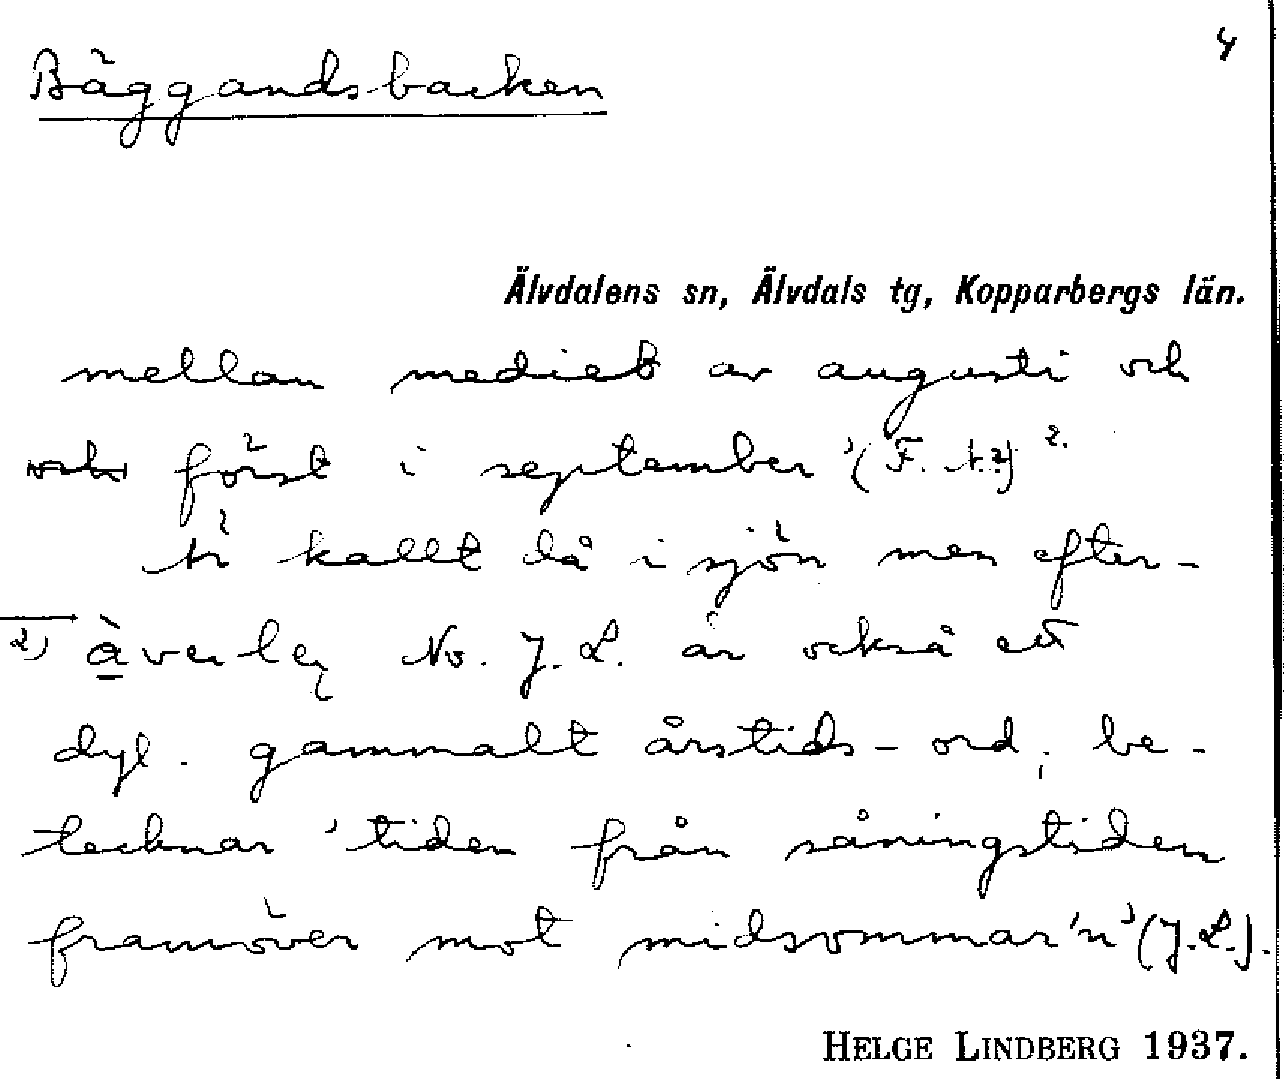 4
Bäggandsbacken
Älvdalens sn, Älvdals tg, Kopparbergs län.
mellan mediet av augusti och
och först i september' (F. A.) 2.
kallt då i sjön men efter-
2) àver-ley No. J. L. är också ett
dyl. gammalt årstids-ord, be-
tecknar 'tiden från såningstiden
framöver mot midsommar'n' (J. L.).
HELGE LINDBERG 1937.